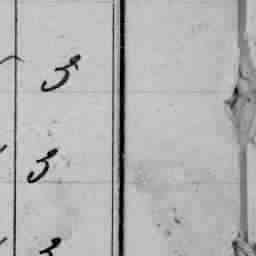 3
3
3